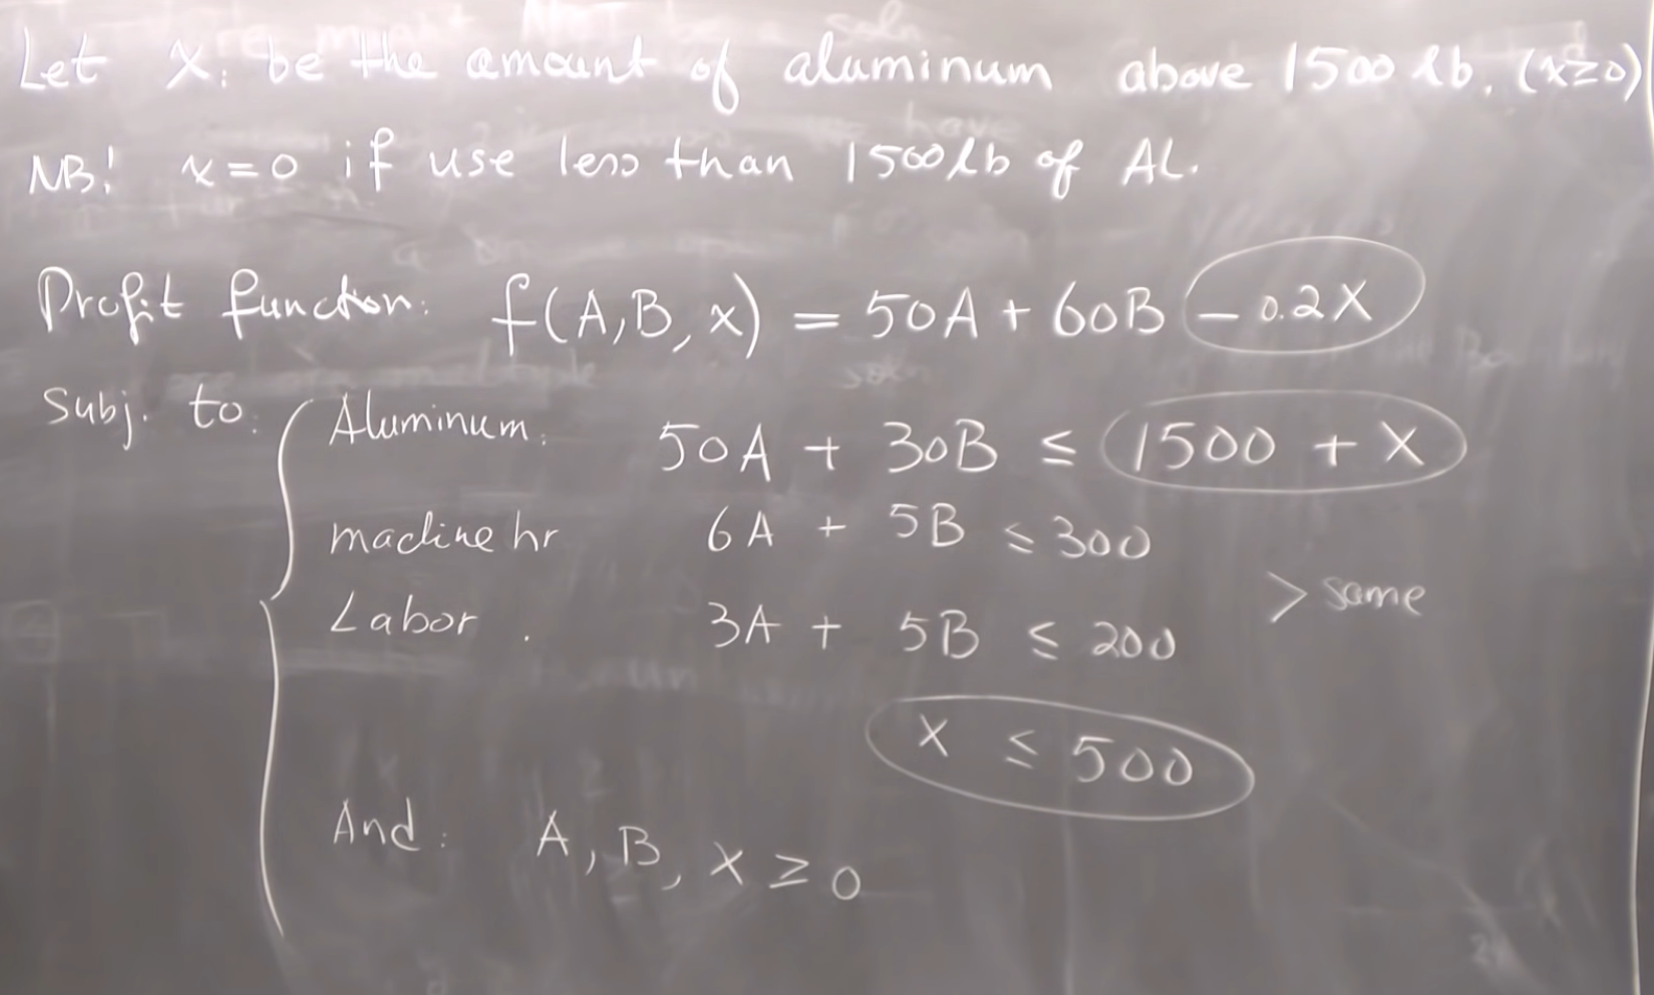 Let x: be the amount of aluminum above 1500 lb. (x≥0)
NB! x=0 if use less than 1500lb of AL.
Profit function: f(A,B,x) = 50A + 60B - 0.2X
Subj. to:
Aluminum: 50A + 30B ≤ 1500 + X
machine hr 6A + 5B ≤ 300
> same
Labor. 3A + 5B ≤ 200
X ≤ 500
And: A, B, X ≥ 0